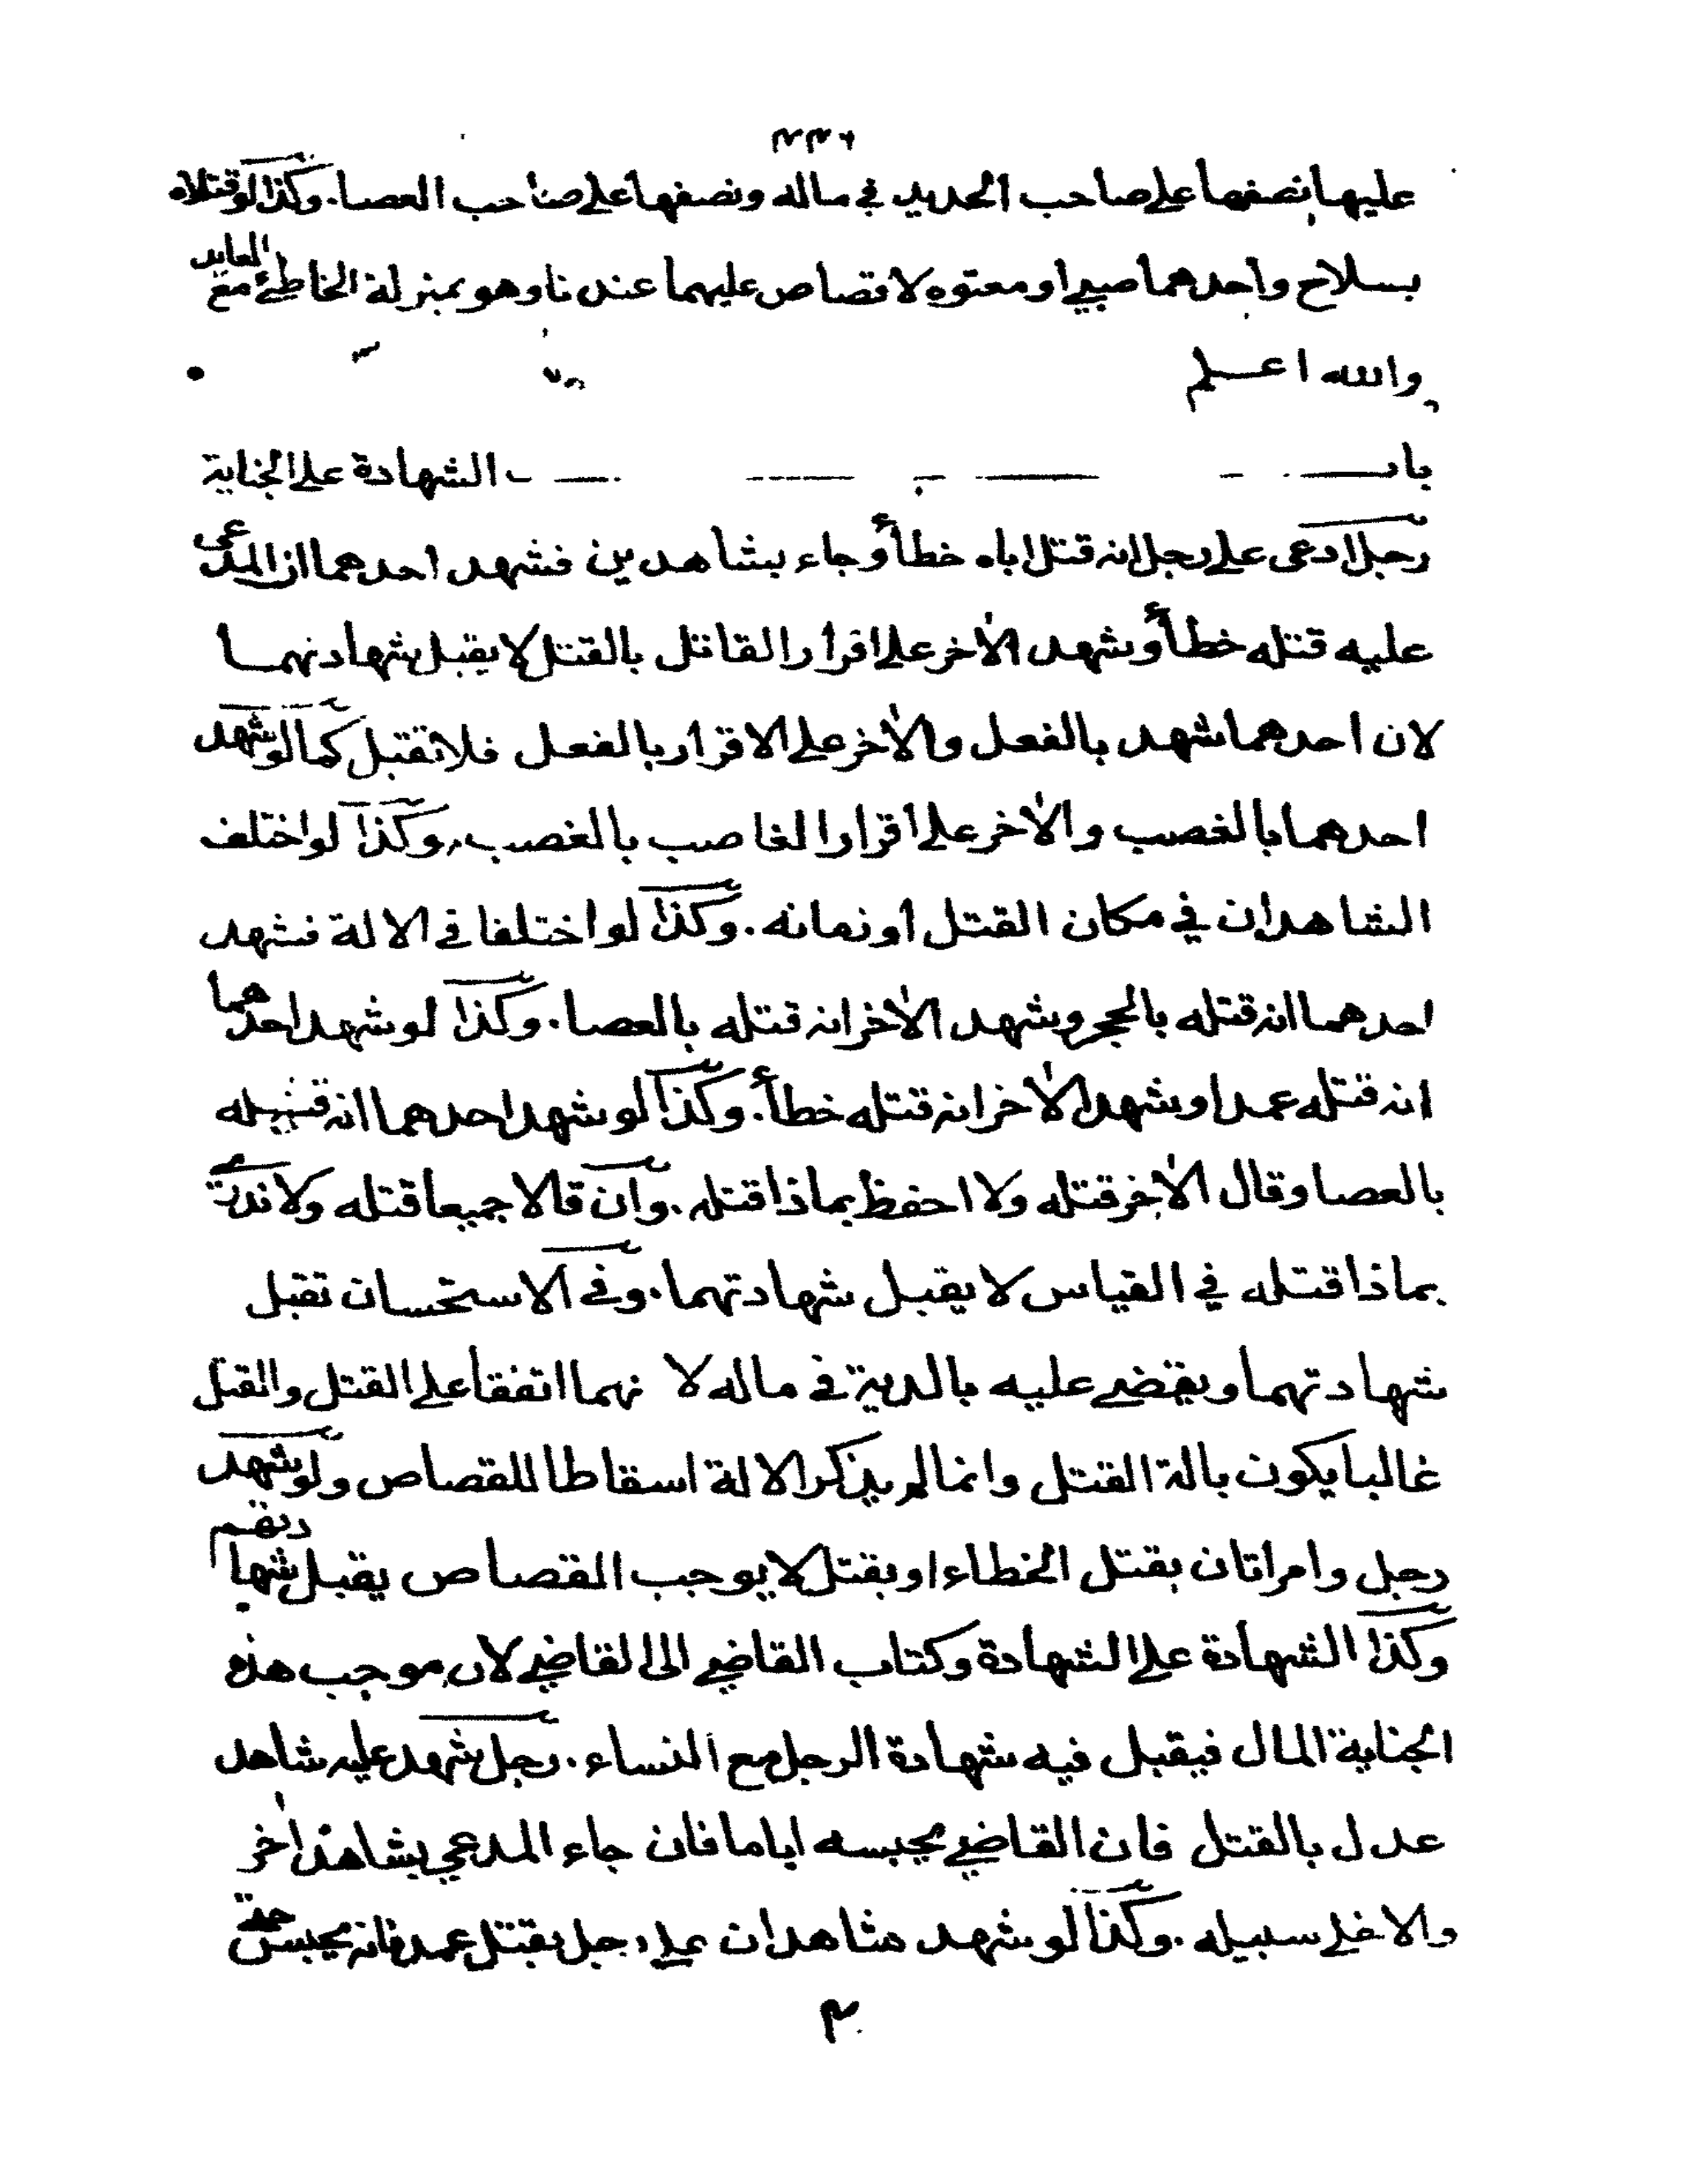 عليهما نصفها على صاحب الحديد في ماله ونصفها على صاحب العصا. وكذا لو قتلاه
بسلاح واحدهما صبي او معتوه لا قصاص عليهما عندنا وهو بمنزلة الخاطئ مع العابد
والله اعلم
باب الشهادة على الجناية
رجل ادعى على رجل انه قتل اباه خطأ وجاء بشاهدين فشهد احدهما ان المدعى
عليه قتله خطأ وشهد الاخر على اقرار القاتل بالقتل لا يقبل شهادتهما
لان احدهما شهد بالفعل والاخر على الاقرار بالفعل فلا تقبل كما لو شهد
احدهما بالغصب والاخر على اقرار الغاصب بالغصب، وكذا لو اختلف
الشاهدان في مكان القتل او زمانه. وكذا لو اختلفا في الالة فشهد
احدهما انه قتله بالحجر وشهد الاخر انه قتله بالعصا. وكذا لو شهد احدهما
انه قتله عمدا وشهد الاخر انه قتله خطأ. وكذا لو شهد احدهما انه قتله
بالعصا وقال الاخر قتله ولا احفظ بماذا قتله. وان قالا جميعا قتله ولا ندري
بماذا قتله في القياس لا يقبل شهادتهما. وفي الاستحسان تقبل
شهادتهما ويقضى عليه بالدية في ماله لا نهما اتفقا على القتل والقتل
غالبا يكون بالة القتل وانما لم يذكر الالة اسقاطا للقصاص ولو شهد
رجل وامراتان بقتل الخطاء او بقتل لا يوجب القصاص يقبل شهادتهم
وكذا الشهادة على الشهادة وكتاب القاضي الى القاضي لان موجب هذه
الجناية المال فيقبل فيه شهادة الرجل مع النساء. رجل شهد عليه شاهد
عدل بالقتل فان القاضي يحبسه اياما فان جاء المدعي بشاهد اخر
والا خلى سبيله. وكذا لو شهد شاهدان على رجل بقتل عمد فانه يحبس حتى